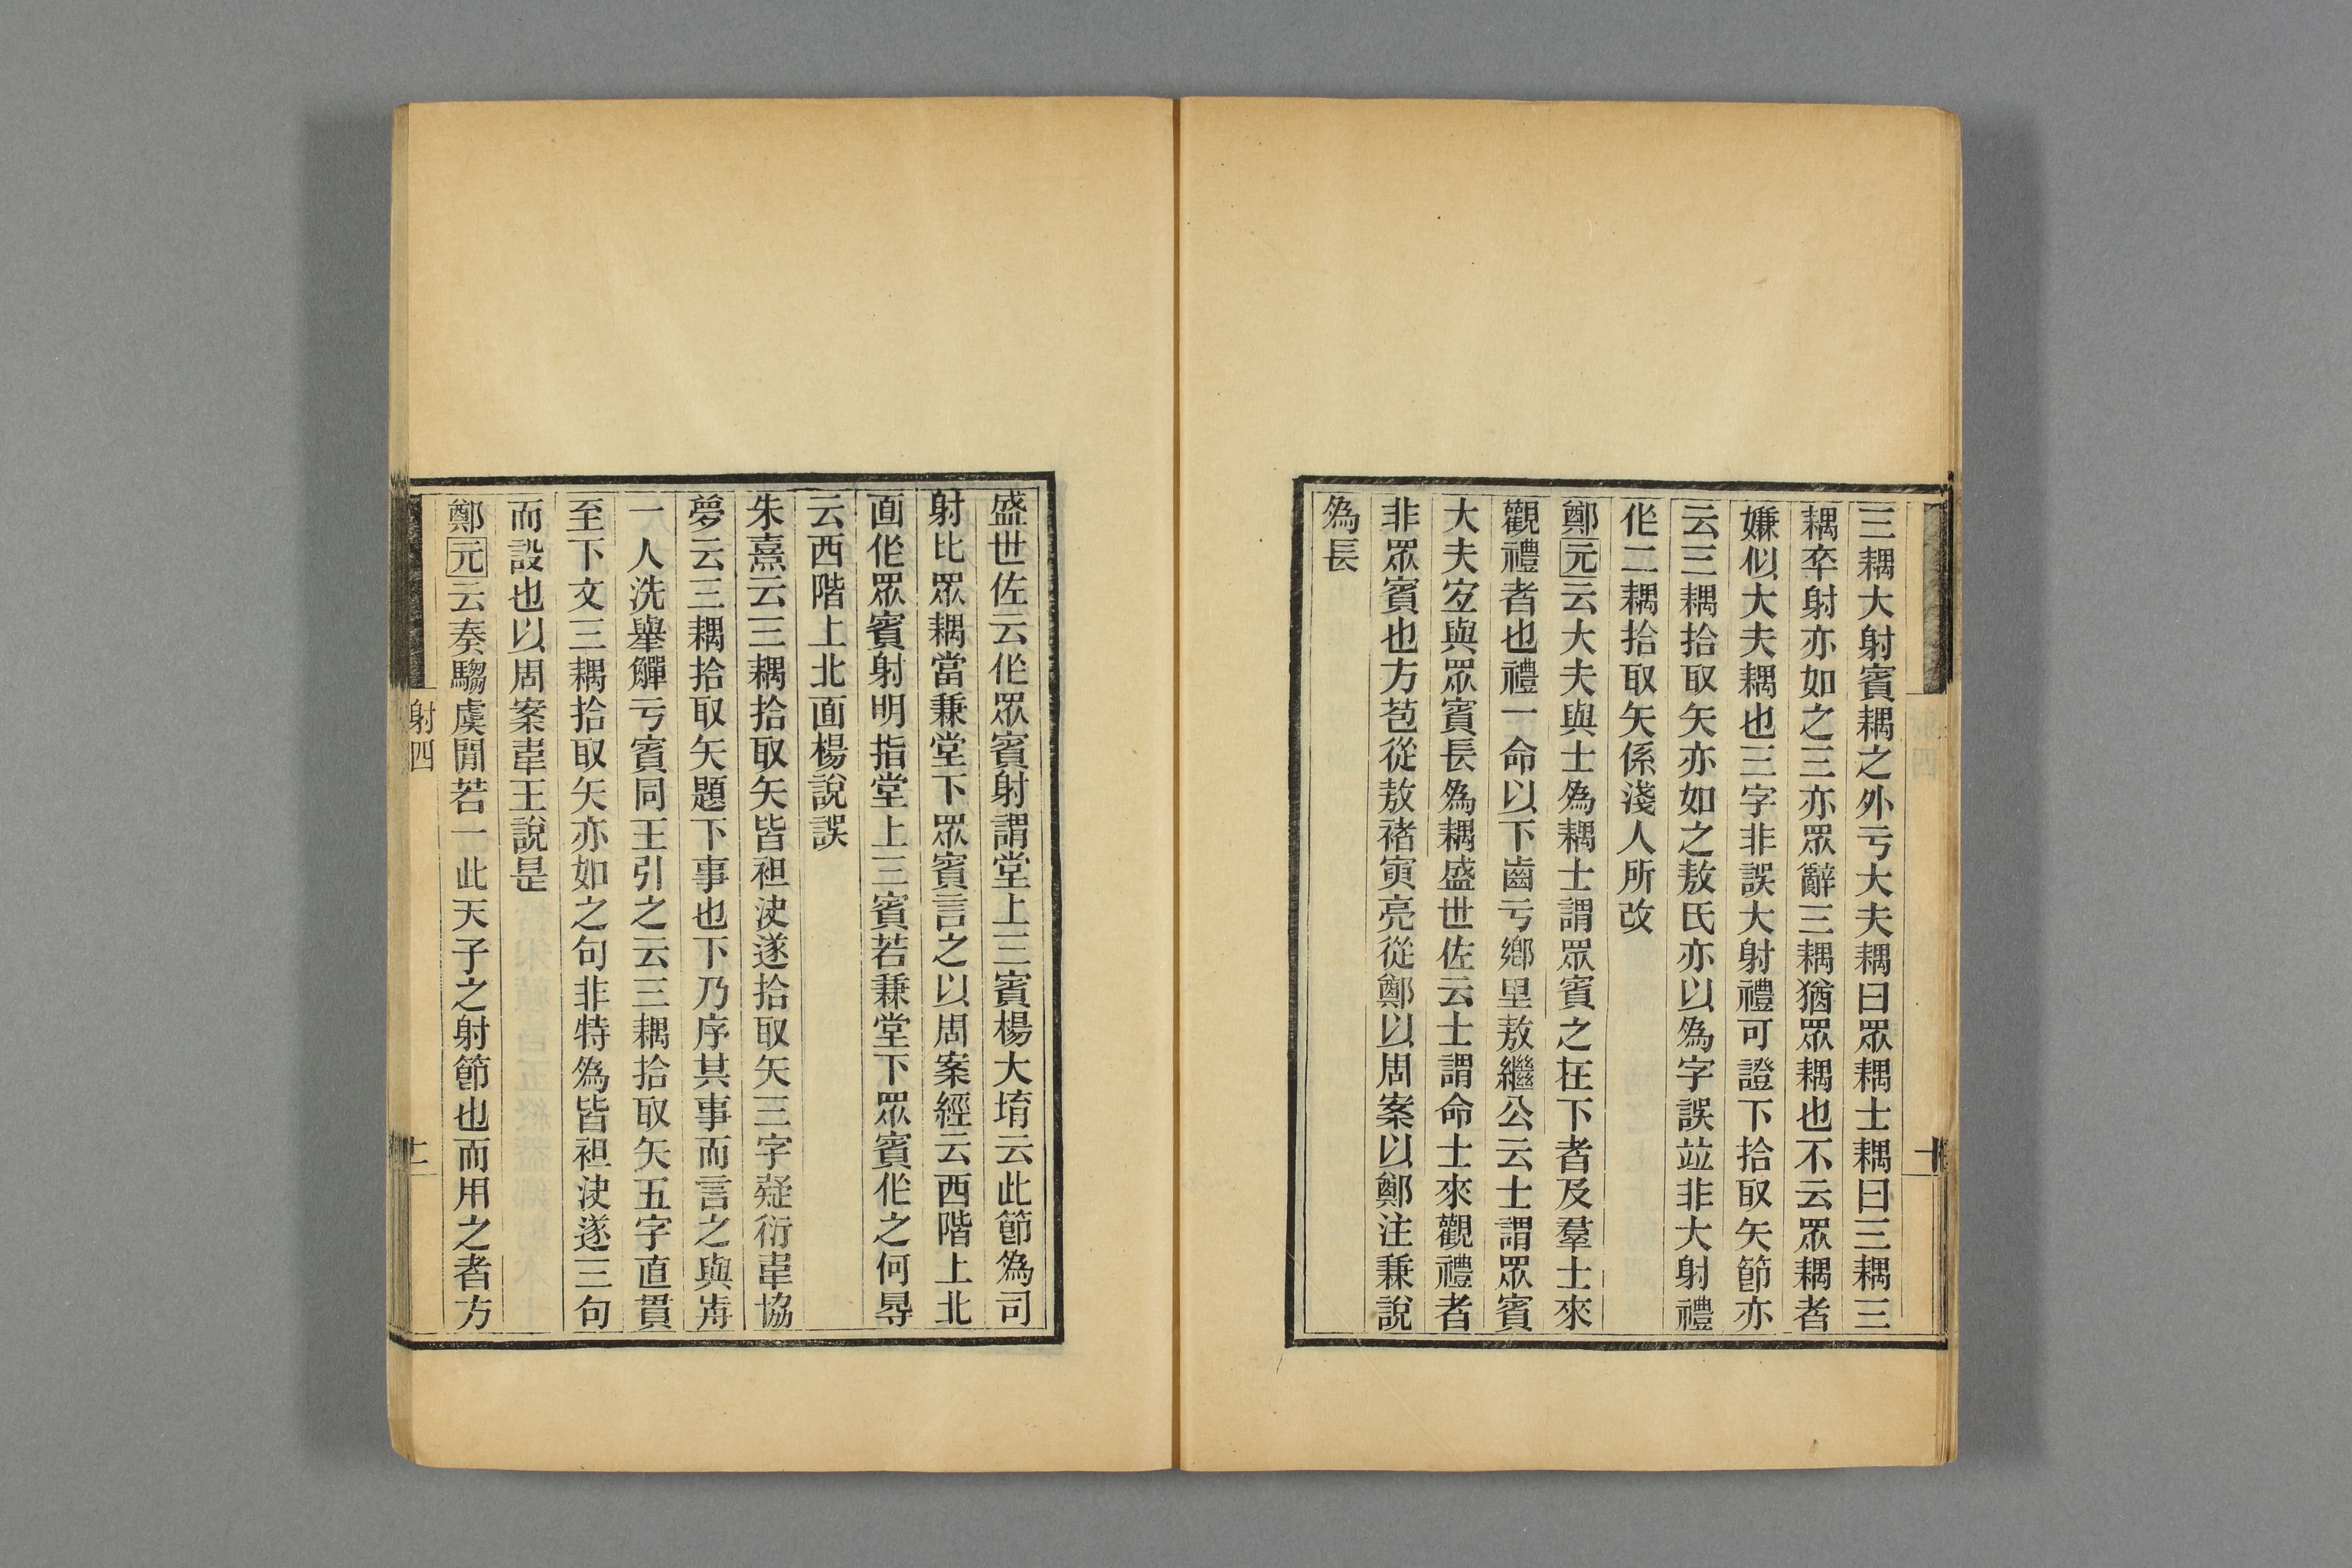 三耦大射賓耦之外亏大夫耦曰眾耦士耦曰三耦三
耦卒射亦如之三亦眾辭三耦猶眾耦也不云眾耦者
嫌似大夫耦也三字非誤大射禮可證下拾取矢節亦
云三耦拾取矢亦如之敖氏亦以為字誤竝非大射禮
作二耦拾取矢係淺人所改
鄭元云大夫與士為耦士謂眾賓之在下者及羣士來
觀禮者也禮一命以下齒亏鄉里敖繼公云士謂眾賓
大夫㝎與眾賓長為耦盛世佐云士謂命士來觀禮者
非眾賓也方苞從敖褚寅亮從鄭以周案以鄭注兼說
為長
十
盛世佐云作眾賓射謂堂上三賓楊大堉云此節為司
射比眾耦當兼堂下眾賓言之以周案經云西階上北
面作眾賓射明指堂上三賓若兼堂下眾賓作之何㝵
云西階上北面楊說誤
朱熹云三耦拾取矢皆袒決遂拾取矢三字疑衍韋協
夢云三耦拾取矢題下事也下乃序其事而言之與歬
一人洗舉觶亏賓同王引之云三耦拾取矢五字直貫
至下文三耦拾取矢亦如之句非特為皆袒決遂三句
而設也以周案韋王說是
鄭元云奏騶虞閒若一此天子之射節也而用之者方
射四